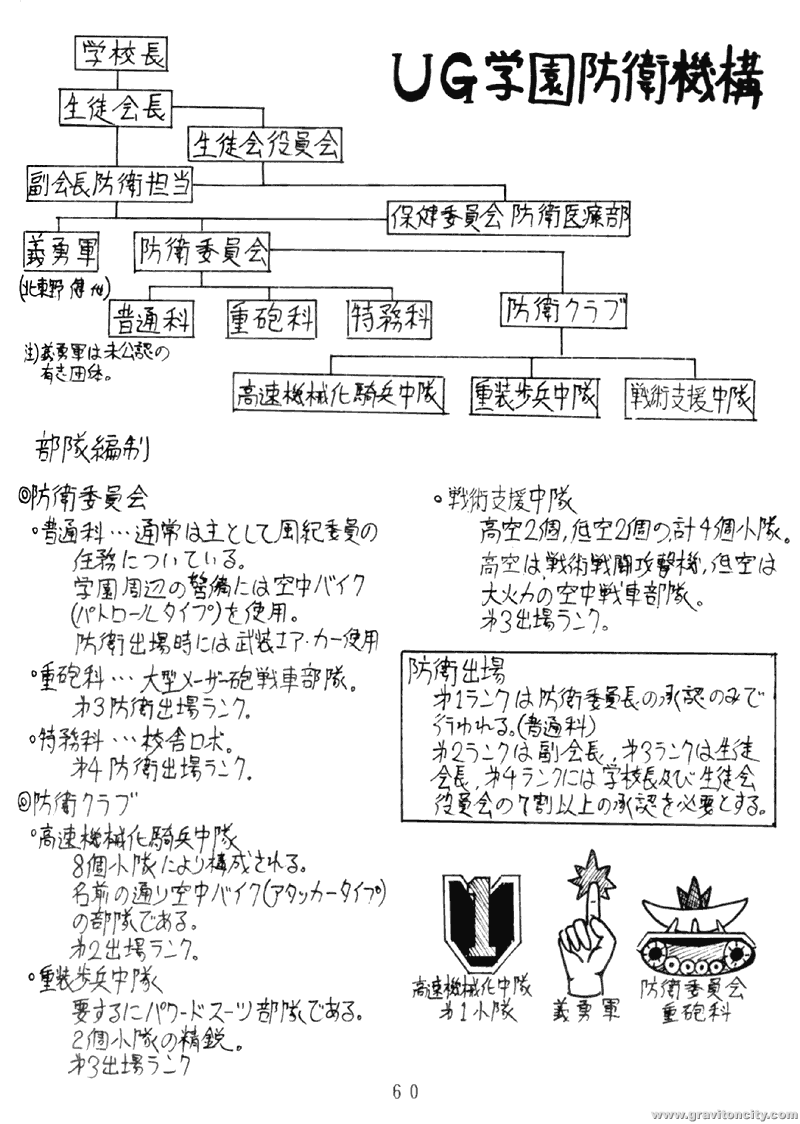 UG学園防衛機構
学校長
生徒会長
生徒会役員会
副会長防衛担当
保健委員会 防衛医療部
義勇軍
防衛委員会
(北東野 健也)
普通科
重砲科
特務科
防衛クラブ
注)義勇軍は未公認の
有志団体。
高速機械化騎兵中隊
重装歩兵中隊
戦術支援中隊
部隊編制
◎防衛委員会
○普通科…通常は主として風紀委員の
任務についている。
学園周辺の警備には空中バイク
(パトロールタイプ)を使用。
防衛出場時には武装エア・カー使用
○重砲科… 大型メーザー砲戦車部隊。
第3防衛出場ランク。
○特務科…校舎ロボ。
第4防衛出場ランク.
◎防衛クラブ
○高速機械化騎兵中隊
8個小隊により構成される。
名前の通り空中バイク(アタッカータイプ)
の部隊である。
第2出場ランク。
○重装歩兵中隊
要するにパワードスーツ部隊である。
2個小隊の精鋭。
第3出場ランク
○戦術支援中隊
高空2個,低空2個の,計4個小隊。
高空は,戦術戦闘攻撃機,低空は
大火力の空中戦車部隊。
第3出場ランク。
防衛出場
第1ランクは防衛委員長の承認のみで
行われる。(普通科)
第2ランクは副会長,第3ランクは生徒
会長,第4ランクには学校長及び生徒会
役員会の7割以上の承認を必要とする。
1
高速機械化中隊
第1小隊
義勇軍
防衛委員会
重砲科
60
www.gravitoncity.com